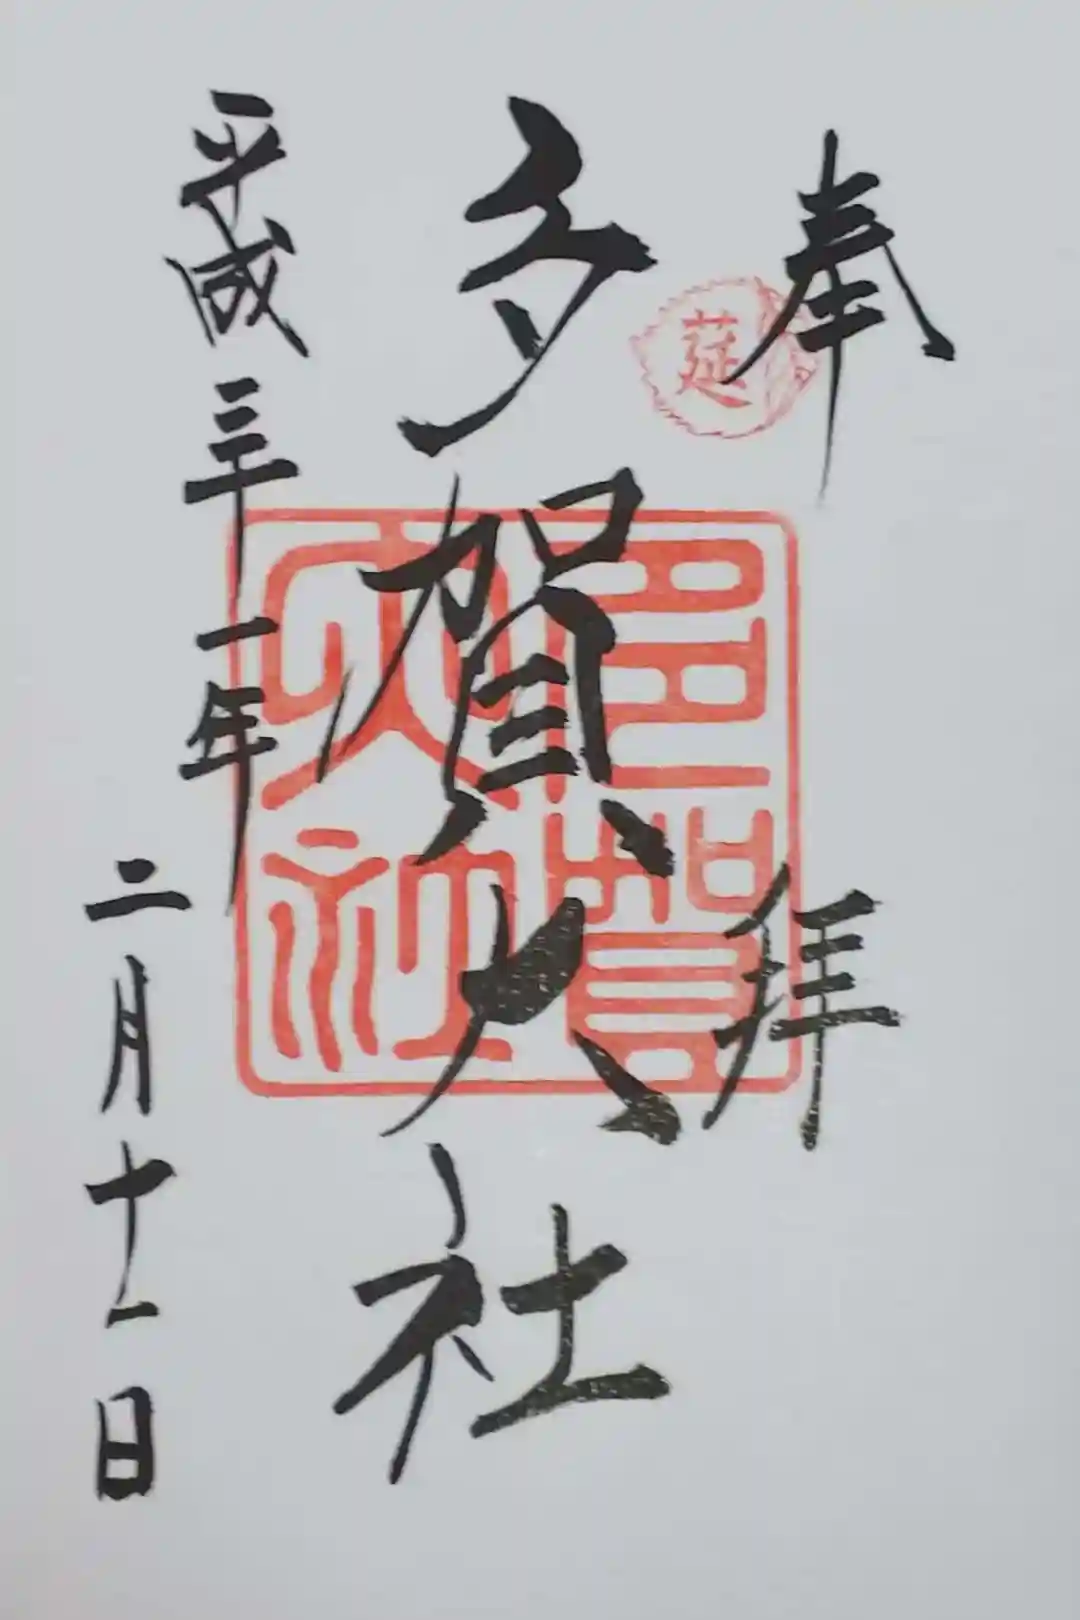 奉拝
莚
多賀大社
多賀
大社
平成三十一年
二月十一日